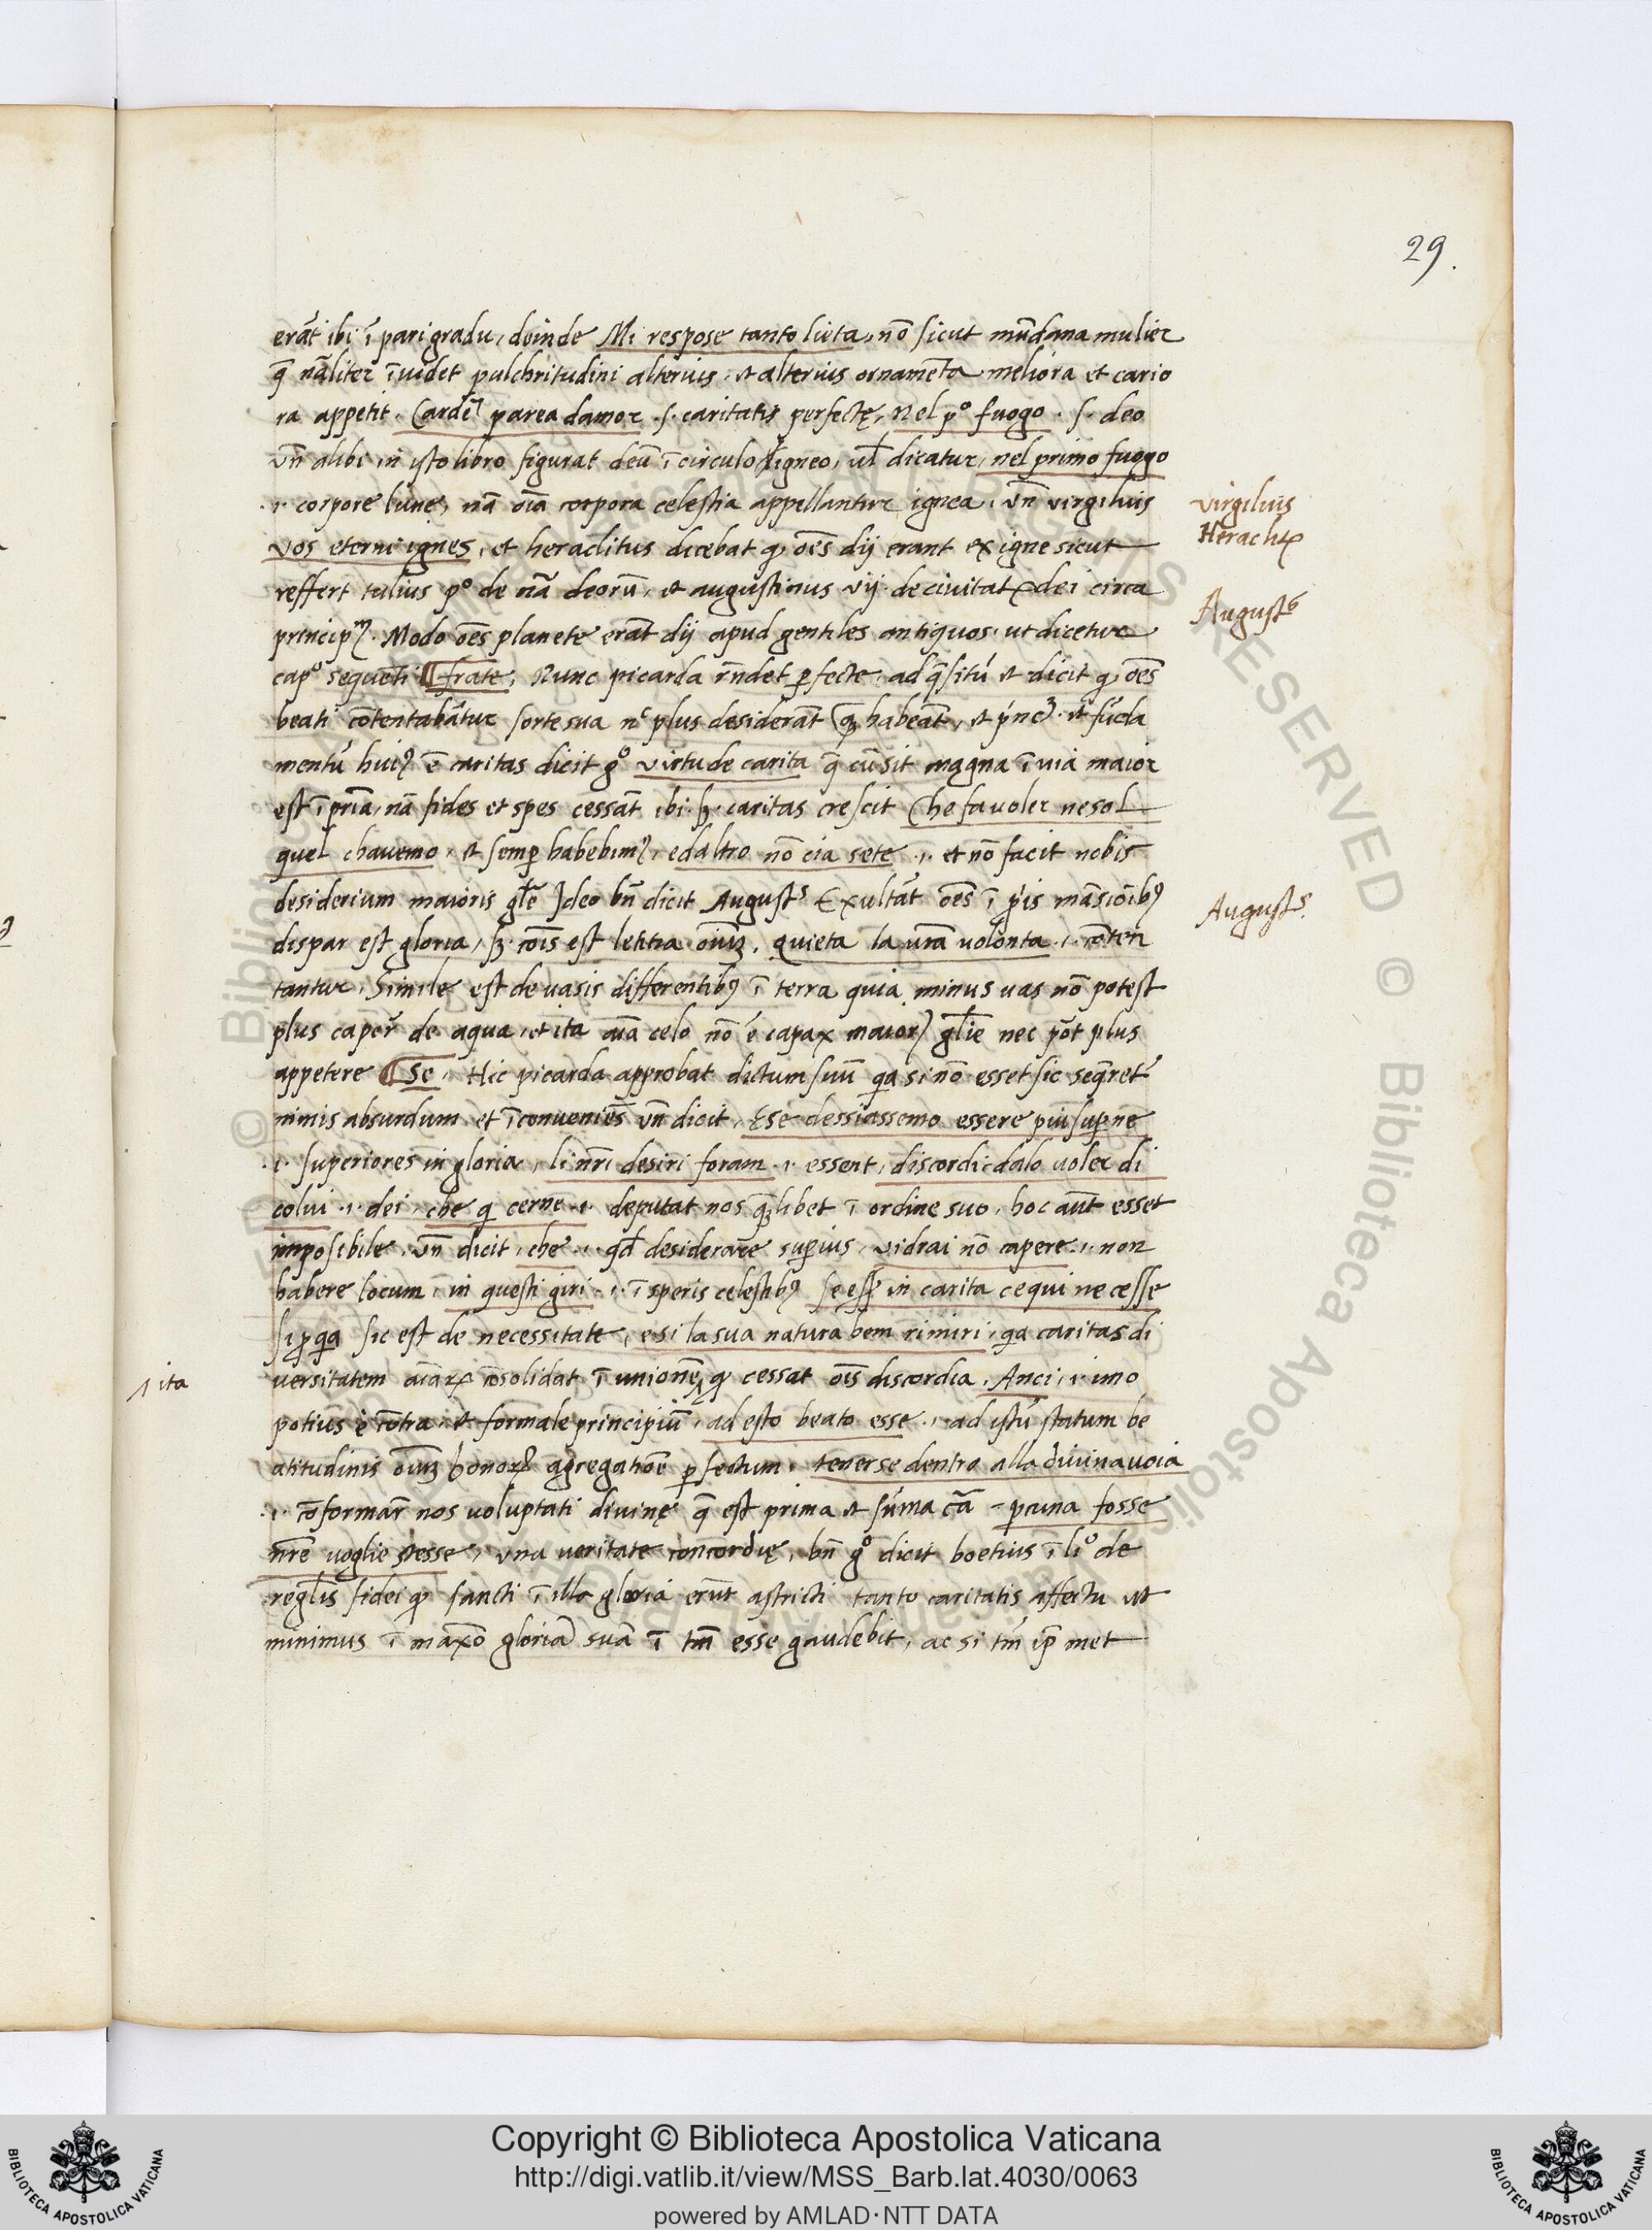 29.
erāt ibi ī pari gradu, deinde Mi respose tanto lieta, nō sicut mūdana mulier
q̄ nāliter īuidet pulchritudini alterius, et alterius ornamēta meliora et cario
ra appetit. Cardē parea damor .s. caritatis perfectę, nel pº fuogo .s. deo
vn̄ alibi in isto libro figurat deū ī circulo igneo, ul̄ dicatur, nel primo fuogo
.i. corpore lune, nā oīa corpora celestia appellantur ignea, vn̄ virgilius
vos eterni ignes, et heraclitus dicebat q, oēs dij erant ex igne sicut
reffert tulius pº de nā deorū, et augustinus vij de ciuitat dei circa
princip. Modo oēs planete erāt dij apud gentiles antiquos ut dicetur
capº sequēti ¶ frate, Nunc picarda rn̄det perfecte, ad q̄situ et dicit q, oēs
beati cōtentabātur sorte sua plus desiderāt habeāt, et fūda
mentū hui ē caritas dicit gº virtu de carita q̄ cū sit magna ī uia maior
est ī pria, nā fides et spes cessāt ibi. caritas crescit Che fa uoler ne sol
quel chauemo, et semp habebim, edaltro nō cia sete .i. et nō facit nobis
desiderium maioris gl̄e Ideo bn̄ dicit August Exultāt oēs ī māsiōib
dispar est gloria, cōis est letitia oium, quieta la ur̄a uolonta .i. cōten
tantur. Simile est de uasis differentib ī terra quia minus uas nō potest
plus caper de aqua, et ita aīa celo nō ē capax maior gl̄ie nec pōt plus
appetere ¶ Se. Hic picarda approbat dictum suū qa si nō esset sic seq̄ret
nimis absurdum et īconueniēs vn̄ dicit, Ese dessiassemo essere piu supne
.i. superiores in gloria, li nr̄i desiri foram .i. essent, discordi dalo uoler di
colui .i. dei, che q cerne .i. deputat nos libet ī ordine suo, hoc aūt esset
imposibile, vn̄ dicit, che .i. qd desiderare superius, vidrai nō capere .i. non
habere locum in questi giri .i. ī speris celestib se ess in carita cequi necesse
si p qa sic est de necessitate, e si la sua natura bem rimiri, qa caritas di
1 ita
uersitatem aīar cōsolidat ī unionē, q cessat oīs discordia. Anci, i. imo
potius ē cōtra et formale principiū, ad esto beato esse .i. ad istū statum be
atitudinis oium bonor agregatiōe perfectum. tenerse dentro alla diuina uoia
.i. cōformar nos uoluptati diuinę q̄ est prima et sūma cā - p cuna fosse
nr̄e uoglie stesse, una ueritate concordię, bn̄ gº dicit boetius ī liº de
regl̄is fidei q sancti ī illa gloria erūt astricti tanto caritatis affectu ut
minimus ī maxō gloriā suā ī tm̄ esse gaudebit, ac si tm̄ ip̄ met
virgilius
Heraclit
August
August
Copyright © Biblioteca Apostolica Vaticana
http://digi.vatlib.it/view/MSS_Barb.lat.4030/0063
powered by AMLAD·NTT DATA
BIBLIOTECA APOSTOLICA VATICANA
BIBLIOTECA APOSTOLICA VATICANA